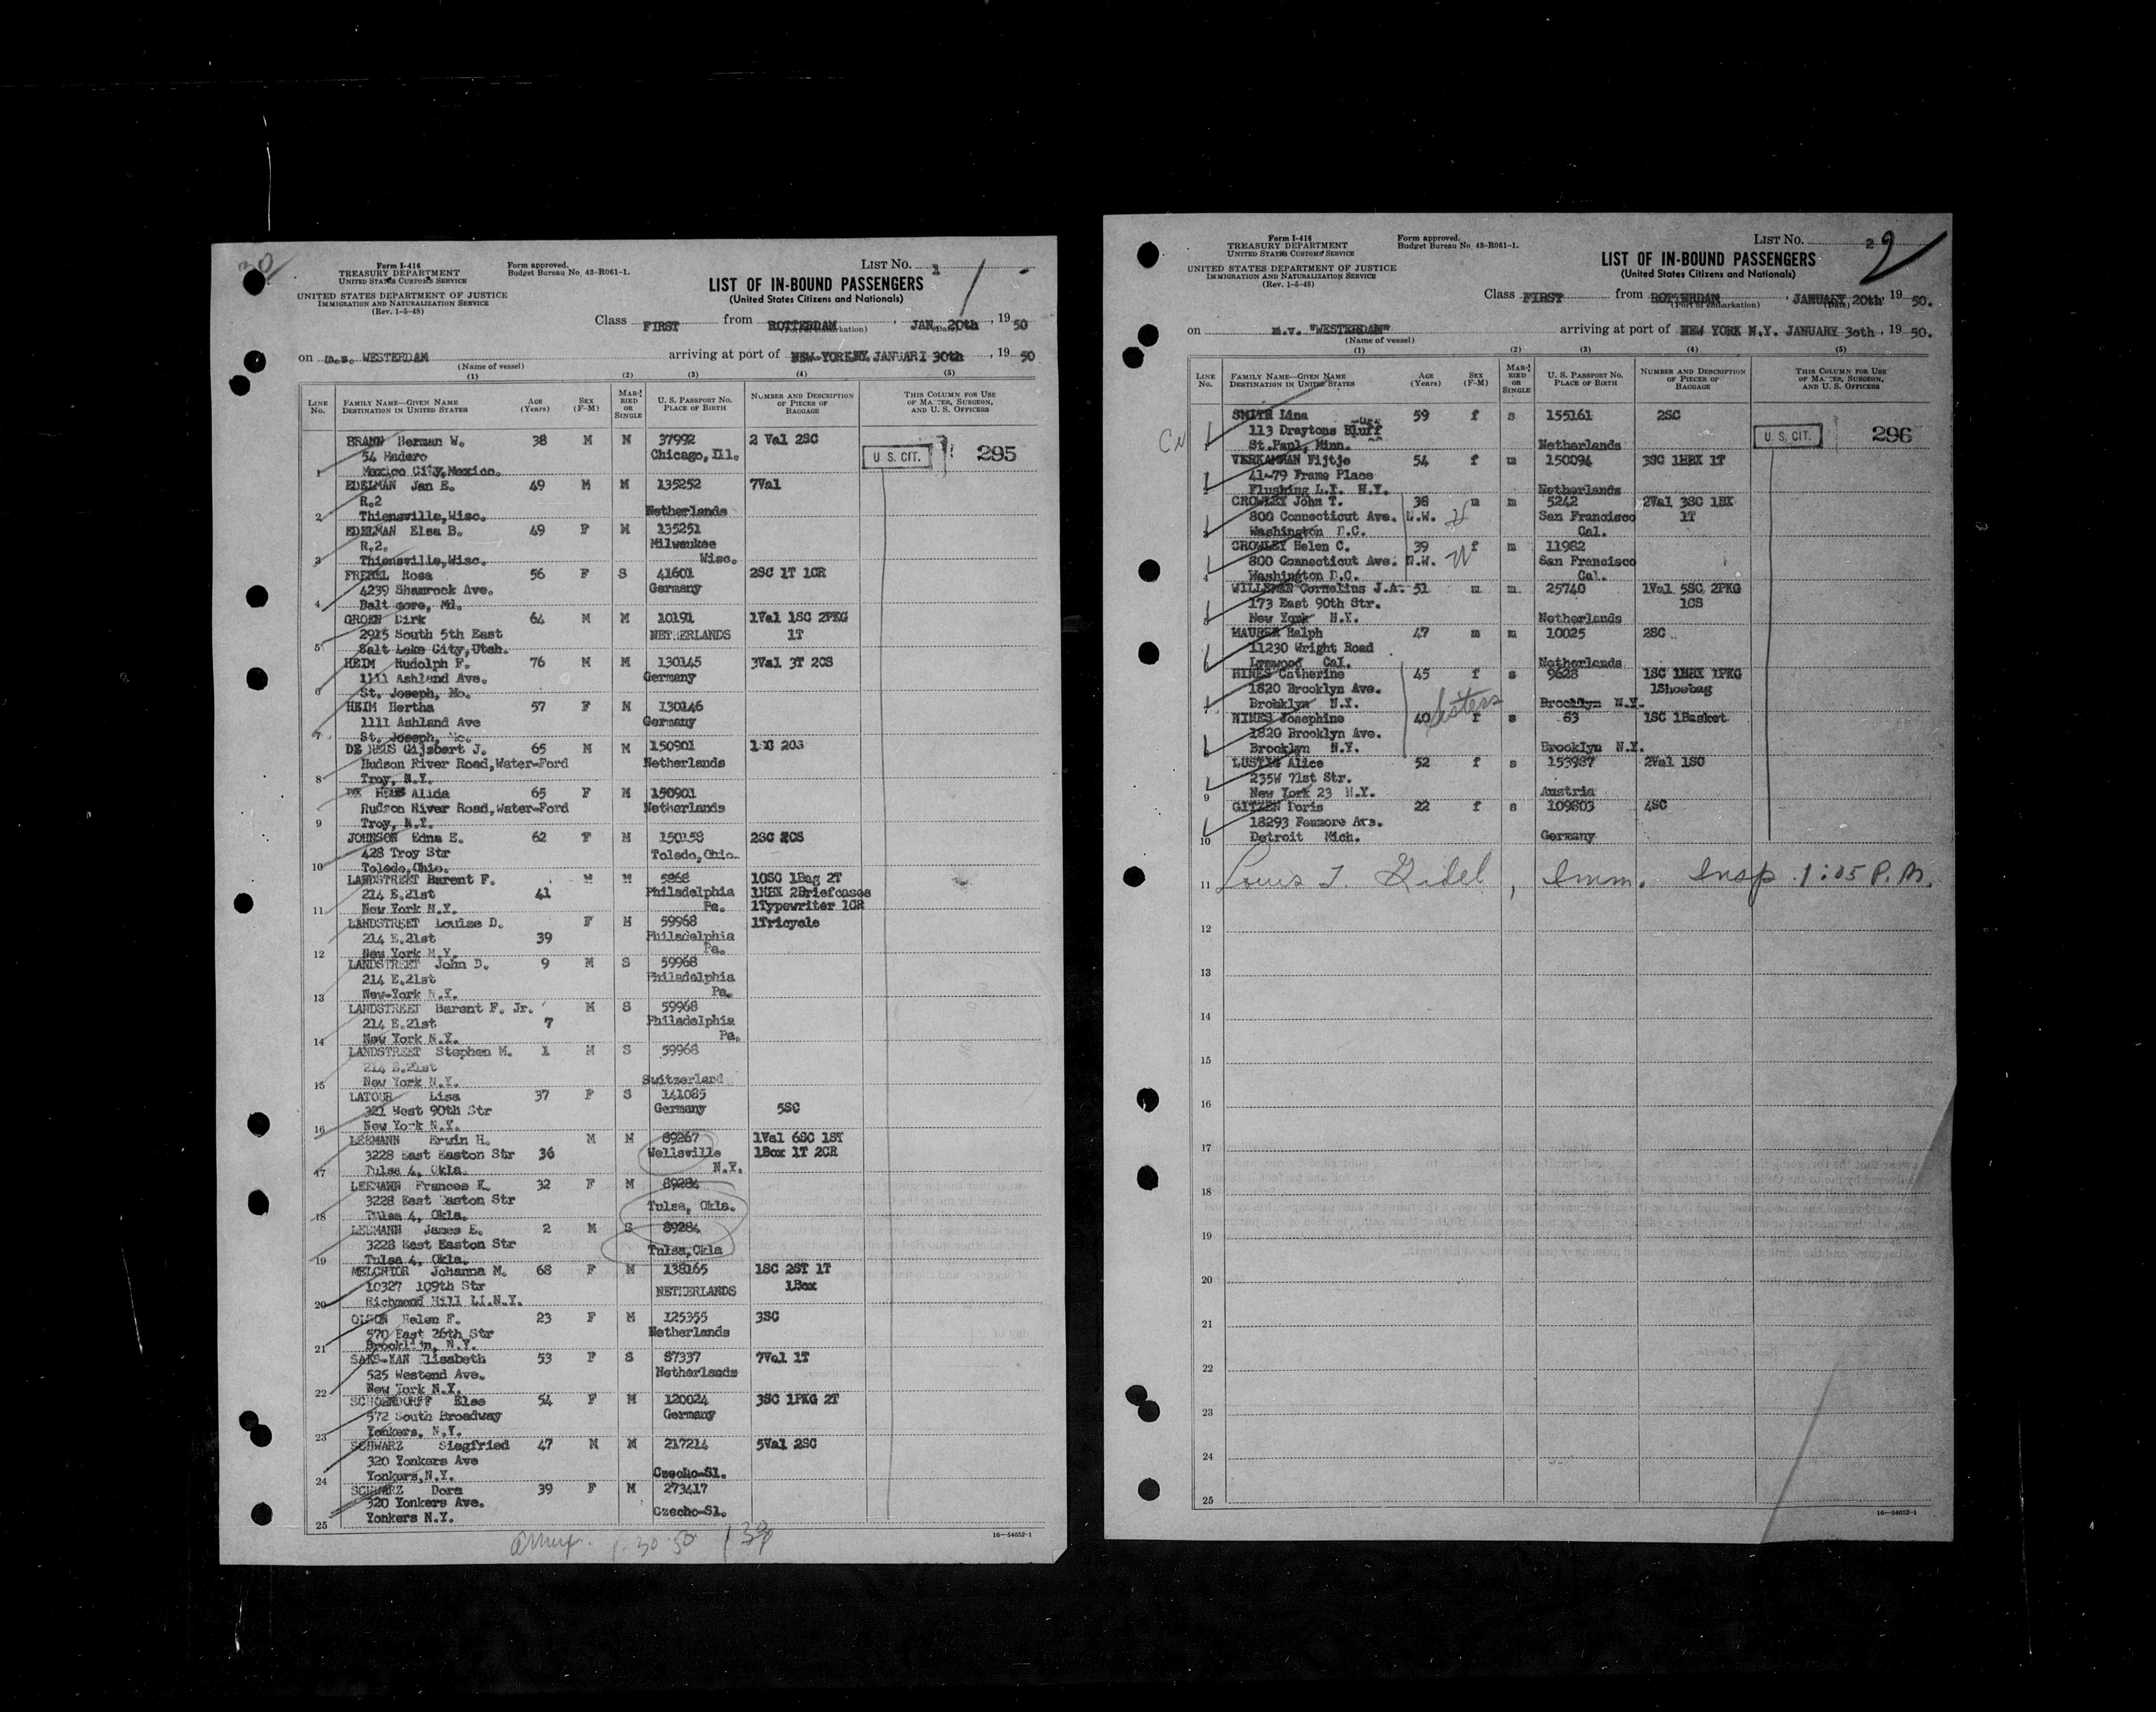 Form I-416
TREASURY DEPARTMENT
UNITED STATES CUSTOMS SERVICE
Form approved.
Budget Bureau No. 43-R061-1.
LIST NO. 1
UNITED STATES DEPARTMENT OF JUSTICE
IMMIGRATION AND NATURALIZATION SERVICE
(Rev. 1-5-48)
LIST OF IN-BOUND PASSENGERS
(United States Citizens and Nationals)
Class FIRST from ROTTERDAM, JAN 20th, 19 50
on WESTERDAM arriving at port of NEW-YORK NY JANUARI 30th, 19 50
(Name of vessel)
(1) (2) (3) (4) (5)
LINE No. FAMILY NAME—GIVEN NAME DESTINATION IN UNITED STATES AGE (Years) SEX (F-M) MARRIED OR SINGLE U. S. PASSPORT NO. PLACE OF BIRTH NUMBER AND DESCRIPTION OF PIECES OF BAGGAGE THIS COLUMN FOR USE OF MASTER, SURGEON, AND U. S. OFFICERS
BRANN Herman W. 38 M M 37992 2 Val 2SC
54 Madero Chicago, Ill. U S. CIT. 295
1 Mexico City, Mexico.
EDELMAN Jan E. 49 M M 135252 7Val
R.2 Netherlands
2 Thiensville, Wisc.
EDELMAN Elsa B. 49 F M 135251
R.2. Milwaukee
3 Thiensville, Wisc. Wisc.
Rosa 56 F S 41601 2SC 1T 1CR
4239 Shamrock Ave. Germany
4 Balt more, Md.
GROEN Dirk 64 M M 10191 1Val 1SC 2PKG
2915 South 5th East NETHERLANDS 1T
5 Salt Lake City, Utah.
HEIM Rudolph F. 76 M M 130145 3Val 3T 2CS
1111 Ashland Ave. Germany
6 St. Joseph, Mo.
HEIM Hertha 57 F M 130146
1111 Ashland Ave Germany
7 St. Joseph, Mo.
DE Gijsbert J. 65 M M 150901
Hudson River Road, Water-Ford Netherlands
8 Troy, N.Y.
DE Alida 65 F M 150901
Hudson River Road, Water-Ford Netherlands
9 Troy, N.Y.
JOHNSON Edna E. 62 F M 150158 2SC 2CS
428 Troy Str Toledo, Ohio.
10 Toledo, Ohio.
LANDSTREET Barent F. M M 5868 10SC 1Bag 2T
214 E.21st 41 Philadelphia 1HBX 2Briefcases
11 New York N.Y. Pa. 1Typewriter 1CR
LANDSTREET Louise D. F M 59968 1Tricycle
214 E.21st 39 Philadelphia
12 New York N.Y. Pa.
LANDSTREET John D. 9 M S 59968
214 E.21st Philadelphia
13 New-York N.Y. Pa.
LANDSTREET Barent F. Jr. M S 59968
214 E.21st 7 Philadelphia
14 New York N.Y. Pa.
LANDSTREET Stephen M. 1 M S 59968
214 E.21st
15 New York N.Y. Switzerland
LATOUR Lisa 37 F S 141085
321 West 90th Str Germany 5SC
16 New York N.Y.
LEEMANN Erwin H. M M 89267 1Val 6SC 1ST
3228 East Easton Str 36 Wellsville 1Box 1T 2CR
17 Tulsa 4, Okla. N.Y.
LEEMANN Frances K. 32 F M 89284
3228 East Easton Str Tulsa, Okla.
18 Tulsa 4, Okla.
LEEMANN James E. 2 M S 89284
3228 East Easton Str Tulsa, Okla
19 Tulsa 4, Okla.
MELCHIOR Johanna M. 68 F M 138165 1SC 2ST 1T
10327 109th Str NETHERLANDS 1Box
20 Richmond Hill LI.N.Y.
OLSON Helen F. 23 F M 125355 3SC
570 East 26th Str Netherlands
21 N.Y.
SAKS-KAN Elisabeth 53 F S 87337 7Val 1T
525 Westend Ave. Netherlands
22 New York N.Y.
SCHOENDORFF Else 54 F M 120024 3SC 1PKG 2T
572 South Broadway Germany
23 Yonkers, N.Y.
SCHWARZ Siegfried 47 M M 217214 5Val 2SC
320 Yonkers Ave
24 Yonkers, N.Y. Czecho-Sl.
SCHWARZ Dora 39 F M 273417
320 Yonkers Ave.
25 Yonkers N.Y. Czecho-Sl.
16—54652-1
1-30-50
Form I-416
TREASURY DEPARTMENT
UNITED STATES CUSTOMS SERVICE
Form approved.
Budget Bureau No. 43-R061-1.
LIST NO. 2 2
UNITED STATES DEPARTMENT OF JUSTICE
IMMIGRATION AND NATURALIZATION SERVICE
(Rev. 1-5-48)
LIST OF IN-BOUND PASSENGERS
(United States Citizens and Nationals)
Class FIRST from ROTTERDAM, JANUARY 20th, 19 50.
(Port of embarkation) (Date)
on m.v. "WESTERDAM" arriving at port of NEW YORK N.Y. JANUARY 30th, 19 50.
(Name of vessel)
(1) (2) (3) (4) (5)
LINE No. FAMILY NAME—GIVEN NAME DESTINATION IN UNITED STATES AGE (Years) SEX (F-M) MARRIED OR SINGLE U. S. PASSPORT NO. PLACE OF BIRTH NUMBER AND DESCRIPTION OF PIECES OF BAGGAGE THIS COLUMN FOR USE OF MASTER, SURGEON, AND U. S. OFFICERS
SMITH Lina 59 f s 155161 2SC
113 Draytons Bluff U. S. CIT. 296
St.Paul, Minn. Netherlands
VERKAMMAN Fijtje 54 f m 150094 3SC 1HBX 1T
41-79 Frame Place
Flushing L.I. N.Y. Netherlands
CROWLEY John T. 38 m m 5242 2Val 3SC 1BX
800 Connecticut Ave. N.W. San Francisco 1T
Washington D.C. Cal.
CROWLEY Helen C. 39 f m 11982
800 Connecticut Ave. N.W. San Francisco
Washington D.C. Cal.
WILLEMEN Cornelius J.A. 51 m m 25740 1Val 5SC 2PKG
173 East 90th Str. 1CS
New York N.Y. Netherlands
MAUSER Ralph 47 m m 10025 2SC
11230 Wright Road
Lynwood Cal. Netherlands
HINES Catherine 45 f s 9628 1SC 1HBX 1PKG
1820 Brooklyn Ave. 1Shoebag
Brooklyn N.Y. Sisters Brooklyn N.Y.
HINES Josephine 40 f s 63 1SC 1Basket
1820 Brooklyn Ave.
Brooklyn N.Y. Brooklyn N.Y.
LUSTIG Alice 52 f s 153987 2Val 1SC
235W 71st Str.
9 New York 23 N.Y. Austria
GITZEN Doris 22 f s 109803 4SC
18293 Fenmore Avs.
10 Detroit Mich. Germany
11 Louis J. , Imm. Insp 1:05 P.M.
12
13
14
15
16
17
18
19
20
21
22
23
24
25
16—54652-1